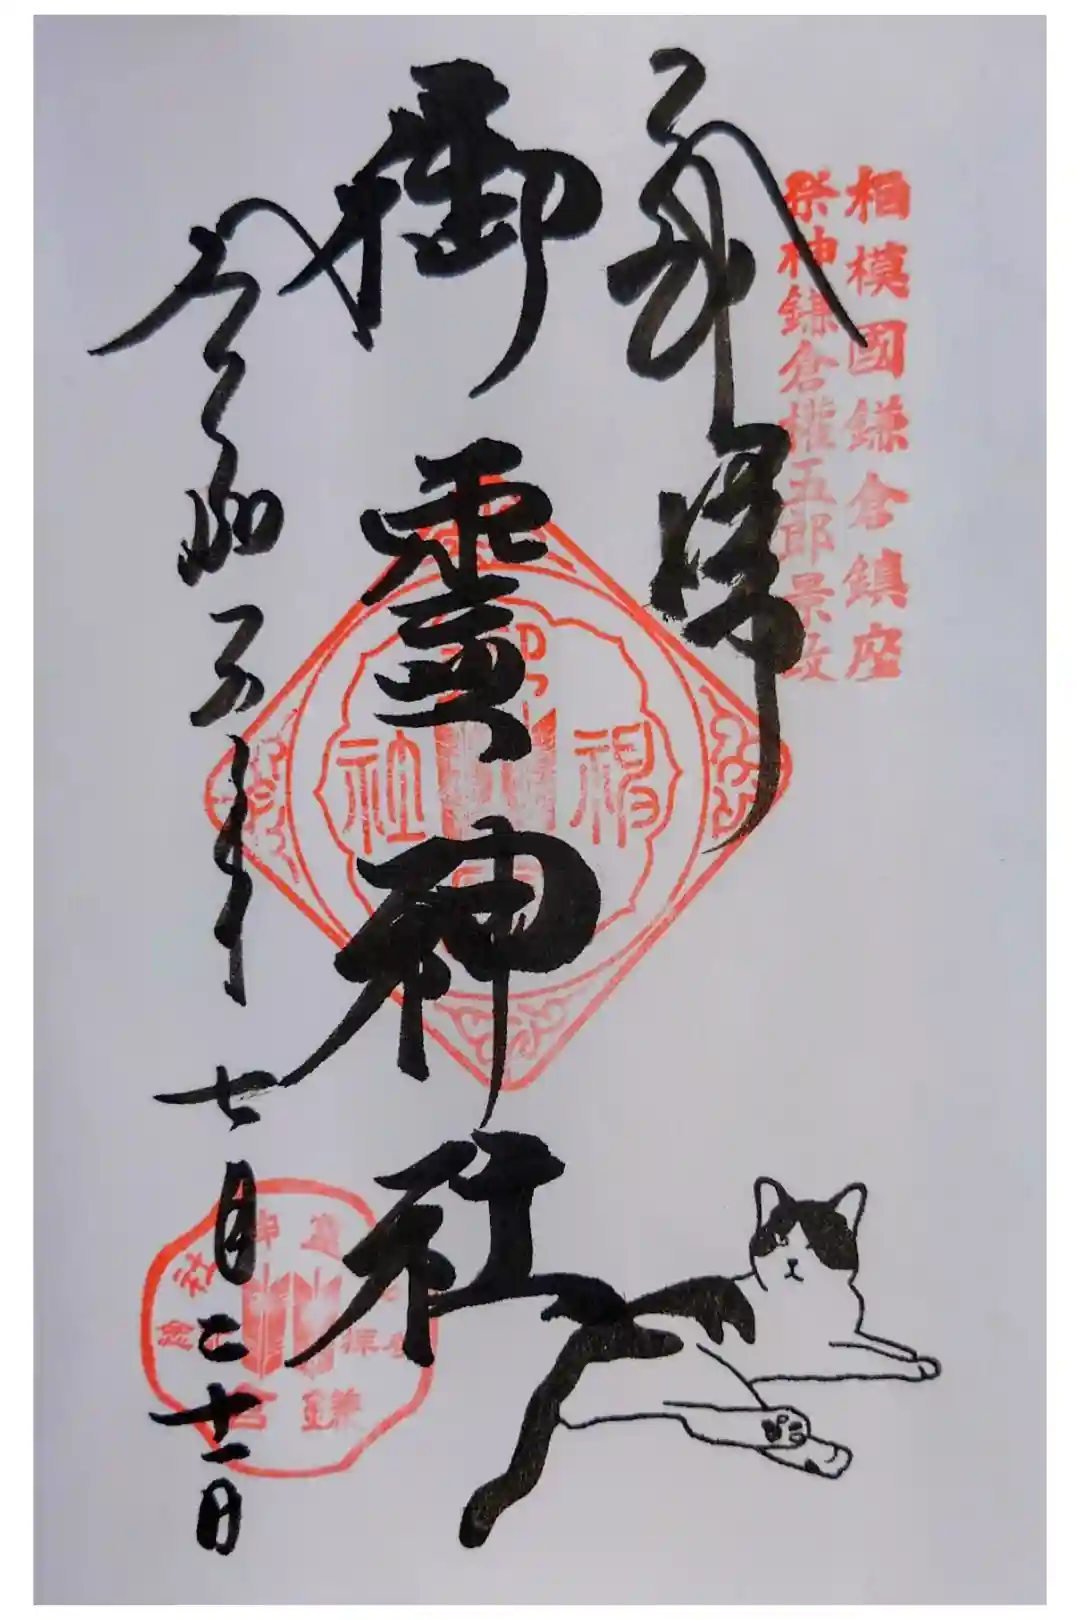 相模國鎌倉鎮座
祭神鎌倉權五郎景政
奉拝
御霊神社
令和五年七月二十一日
神
社